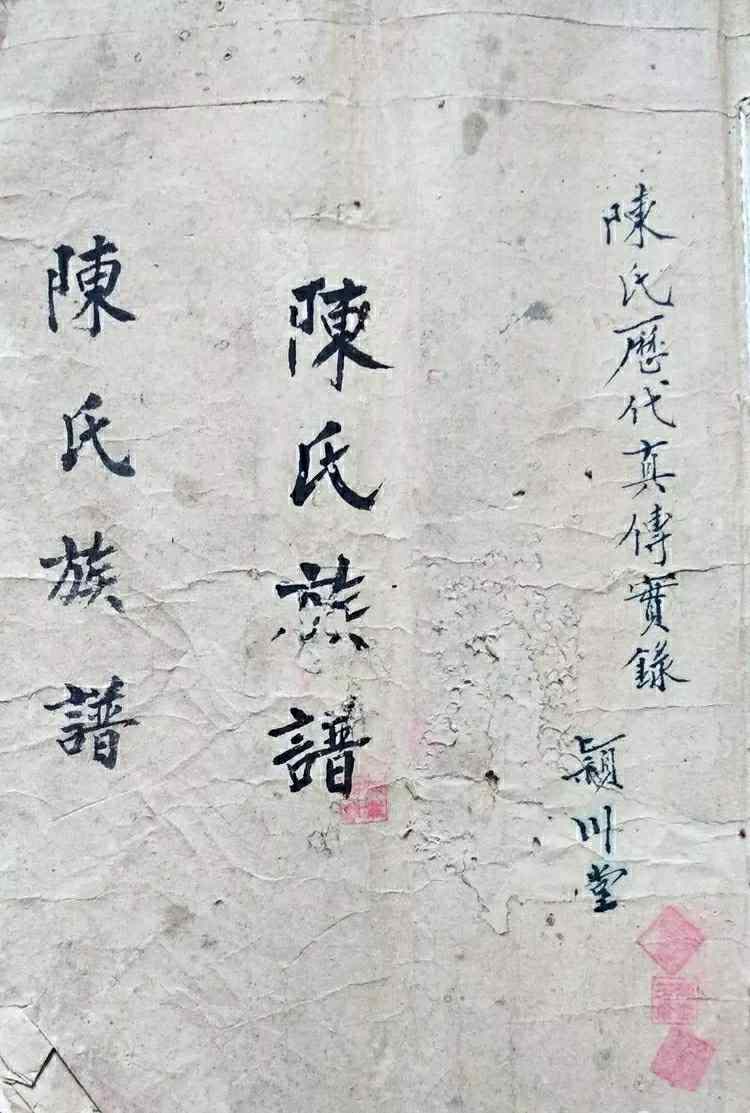 陳氏歷代真傳實錄
潁川堂
陳氏族譜
陳氏族譜